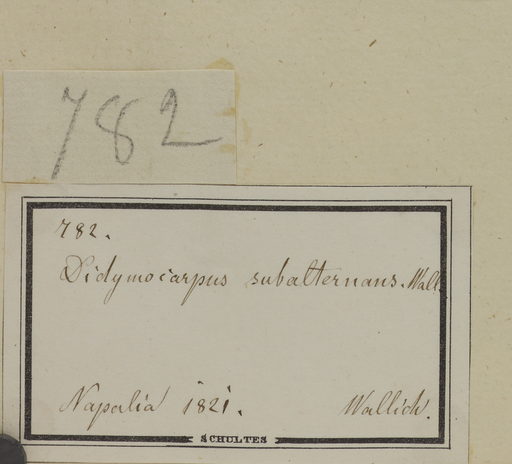 782
782.
Didymocarpus subalternans. Wall.
Napalia 1821.
Wallich.
SCHULTES